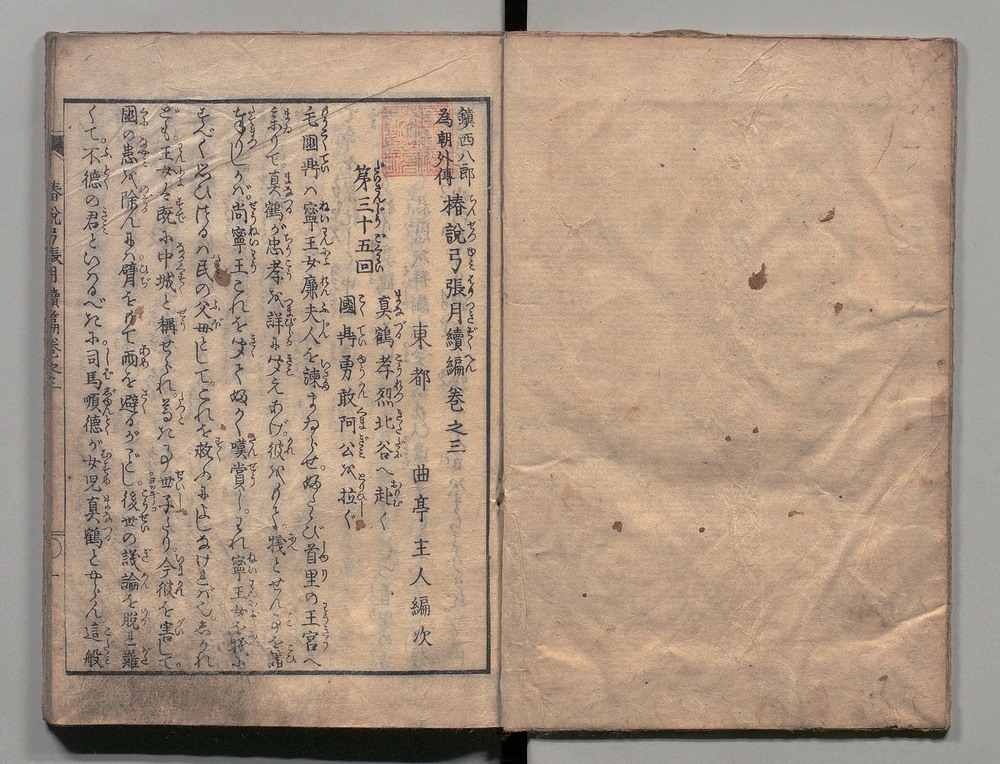 鎮西八郎
為朝外傳
椿説弓張月續編巻之三
東都 曲亭主人編次
第三十五回
真鶴孝烈北谷へ赴く
國冉勇敢阿公を拉ぐ
毛國冉ハ寧王女廉夫人を諫まゐらせ。ふたゝび首里の王宮へ
まゐりて。真鶴が忠孝を詳に聞えあげ。彼をもて。犠とせん事を請
奉りしかバ。尚寧王これを聞て。ふかく嘆賞し。われ寧王女を犠に
すべく思ひけるハ民の父母として。これを救ふによしなけれバ也。しかれ
ども王女ハ既に中城と称せられ。わがための世子たり。今彼を害して。
國の患を除んハ臂をもて雨を避るがごとし。後世の議論を脱れ難
くて。不徳の君といはるべきに司馬順徳が女児真鶴とやらん這般
椿説弓張月續編巻之三
一